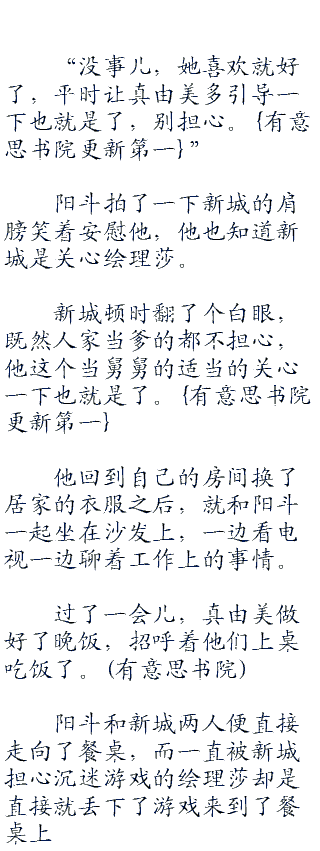 “没事儿，她喜欢就好
了，平时让真由美多引导一
下也就是了，别担心。{有意
思书院更新第一}”
阳斗拍了一下新城的肩
膀笑着安慰他，他也知道新
城是关心绘理莎。
新城顿时翻了个白眼，
既然人家当爹的都不担心，
他这个当舅舅的适当的关心
一下也就是了。{有意思书院
更新第一}
他回到自己的房间换了
居家的衣服之后，就和阳斗
一起坐在沙发上，一边看电
视一边聊着工作上的事情。
过了一会儿，真由美做
好了晚饭，招呼着他们上桌
吃饭了。(有意思书院)
阳斗和新城两人便直接
走向了餐桌，而一直被新城
担心沉迷游戏的绘理莎却是
直接就丢下了游戏来到了餐
桌上